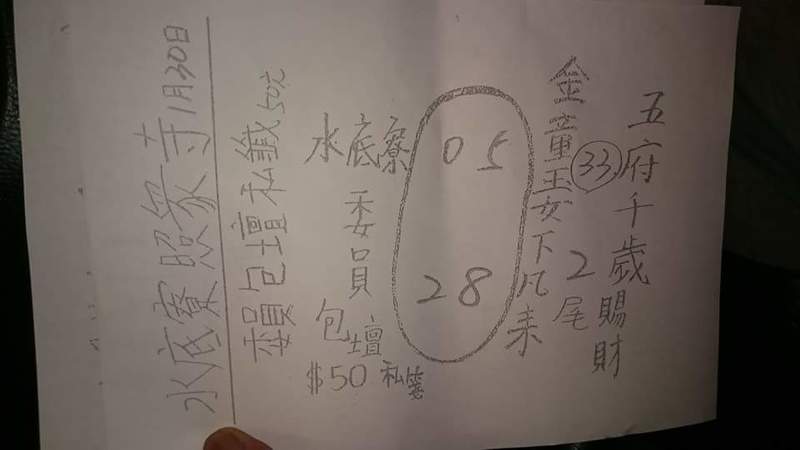 五府千歲賜財
33
2尾
金童玉女下凡来
05
28
水底寮
委員
包壇
$50私籤
賴包壇私籤50元
水底寮照衆寺1月30日